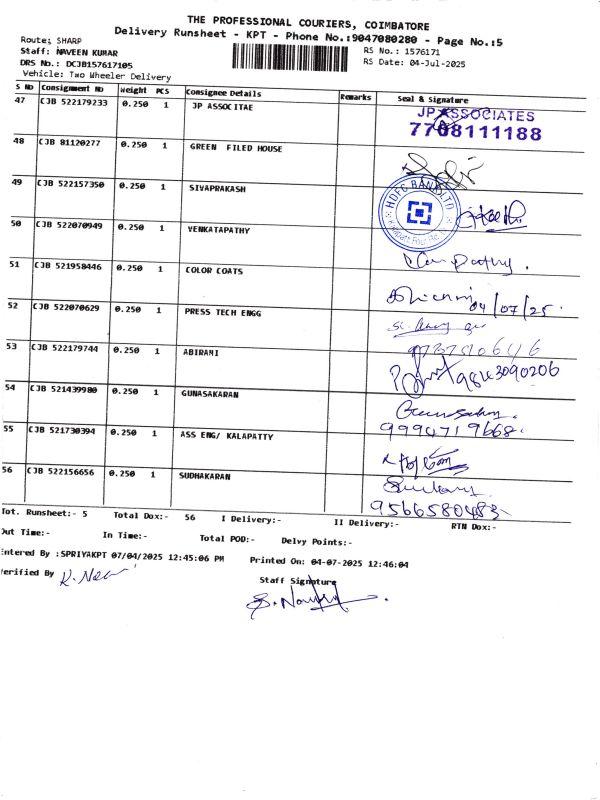 THE PROFESSIONAL COURIERS, COIMBATORE
Delivery Runsheet - KPT - Phone No.:9047080280 - Page No.:5
Route: SHARP
Staff: NAVEEN KUMAR RS No.: 1576171
DRS No.: DCJB157617105 RS Date: 04-Jul-2025
Vehicle: Two Wheeler Delivery
S No Consignment No Weight PCS Consignee Details Remarks Seal & Signature
47 CJB 522179233 0.250 1 JP ASSOCITAE JP ASSOCIATES
7708111188
48 CJB 81120277 0.250 1 GREEN FILED HOUSE
49 CJB 522157350 0.250 1 SIVAPRAKASH HDFC BANK LTD
50 CJB 522070949 0.250 1 VENKATAPATHY
51 CJB 521958446 0.250 1 COLOR COATS
04/07/25
52 CJB 522070629 0.250 1 PRESS TECH ENGG
53 CJB 522179744 0.250 1 ABIRAMI
9843090206
54 CJB 521439980 0.250 1 GUNASAKARAN
9994719668
55 CJB 521730394 0.250 1 ASS ENG/ KALAPATTY
56 CJB 522156656 0.250 1 SUDHAKARAN
9566580483
Tot. Runsheet:- 5 Total Dox:- 56 I Delivery:- II Delivery:- RTN Dox:-
Out Time:- In Time:- Total POD:- Delvy Points:-
Entered By :SPRIYAKPT 07/04/2025 12:45:06 PM Printed On: 04-07-2025 12:46:04
Verified By Staff Signature